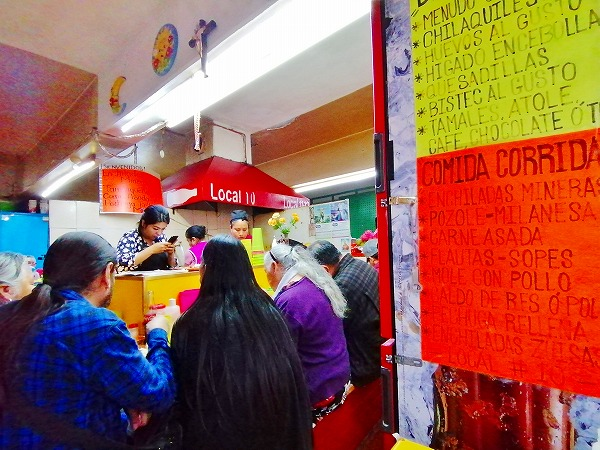 Local 10
Local
* MENUDO
* CHILAQUILES
* HUEVOS AL GUSTO
* HIGADO ENCEBOLLA
* QUESADILLAS
* BISTEC AL GUSTO
* TAMALES, ATOLE
CAFE, CHOCOLATE Ó TÉ
COMIDA CORRIDA
ENCHILADAS MINERAS
* POZOLE-MILANESA
CARNE ASADA
-SOPES
* MOLE CON POLLO
CALDO DE RES Ó POL
RELLENA
LOCAL #